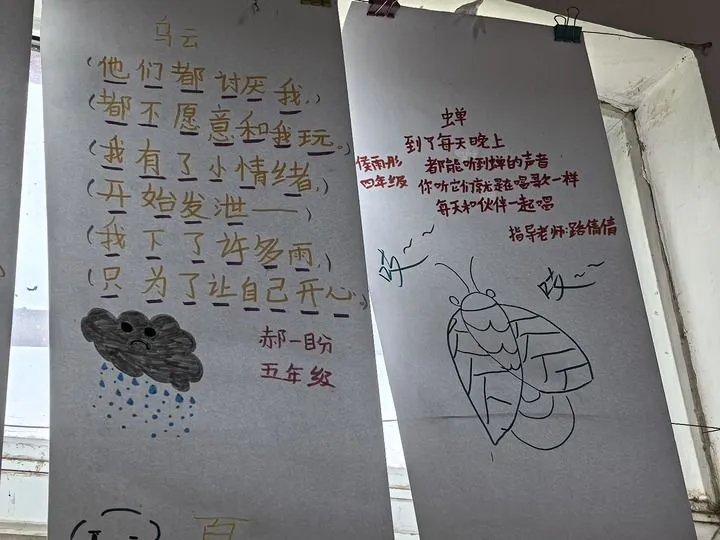 乌云
(他们都讨厌我,)
(都不愿意和我玩。)
(我有了小情绪,)
(开始发泄——)
(我下了许多雨,)
(只为了让自己开心,)
郝一盼
五年级
蝉
到了每天晚上
都能听到蝉的声音
你听它们就是在唱歌一样
每天和伙伴一起唱
侯雨彤
四年级
指导老师:路倩倩